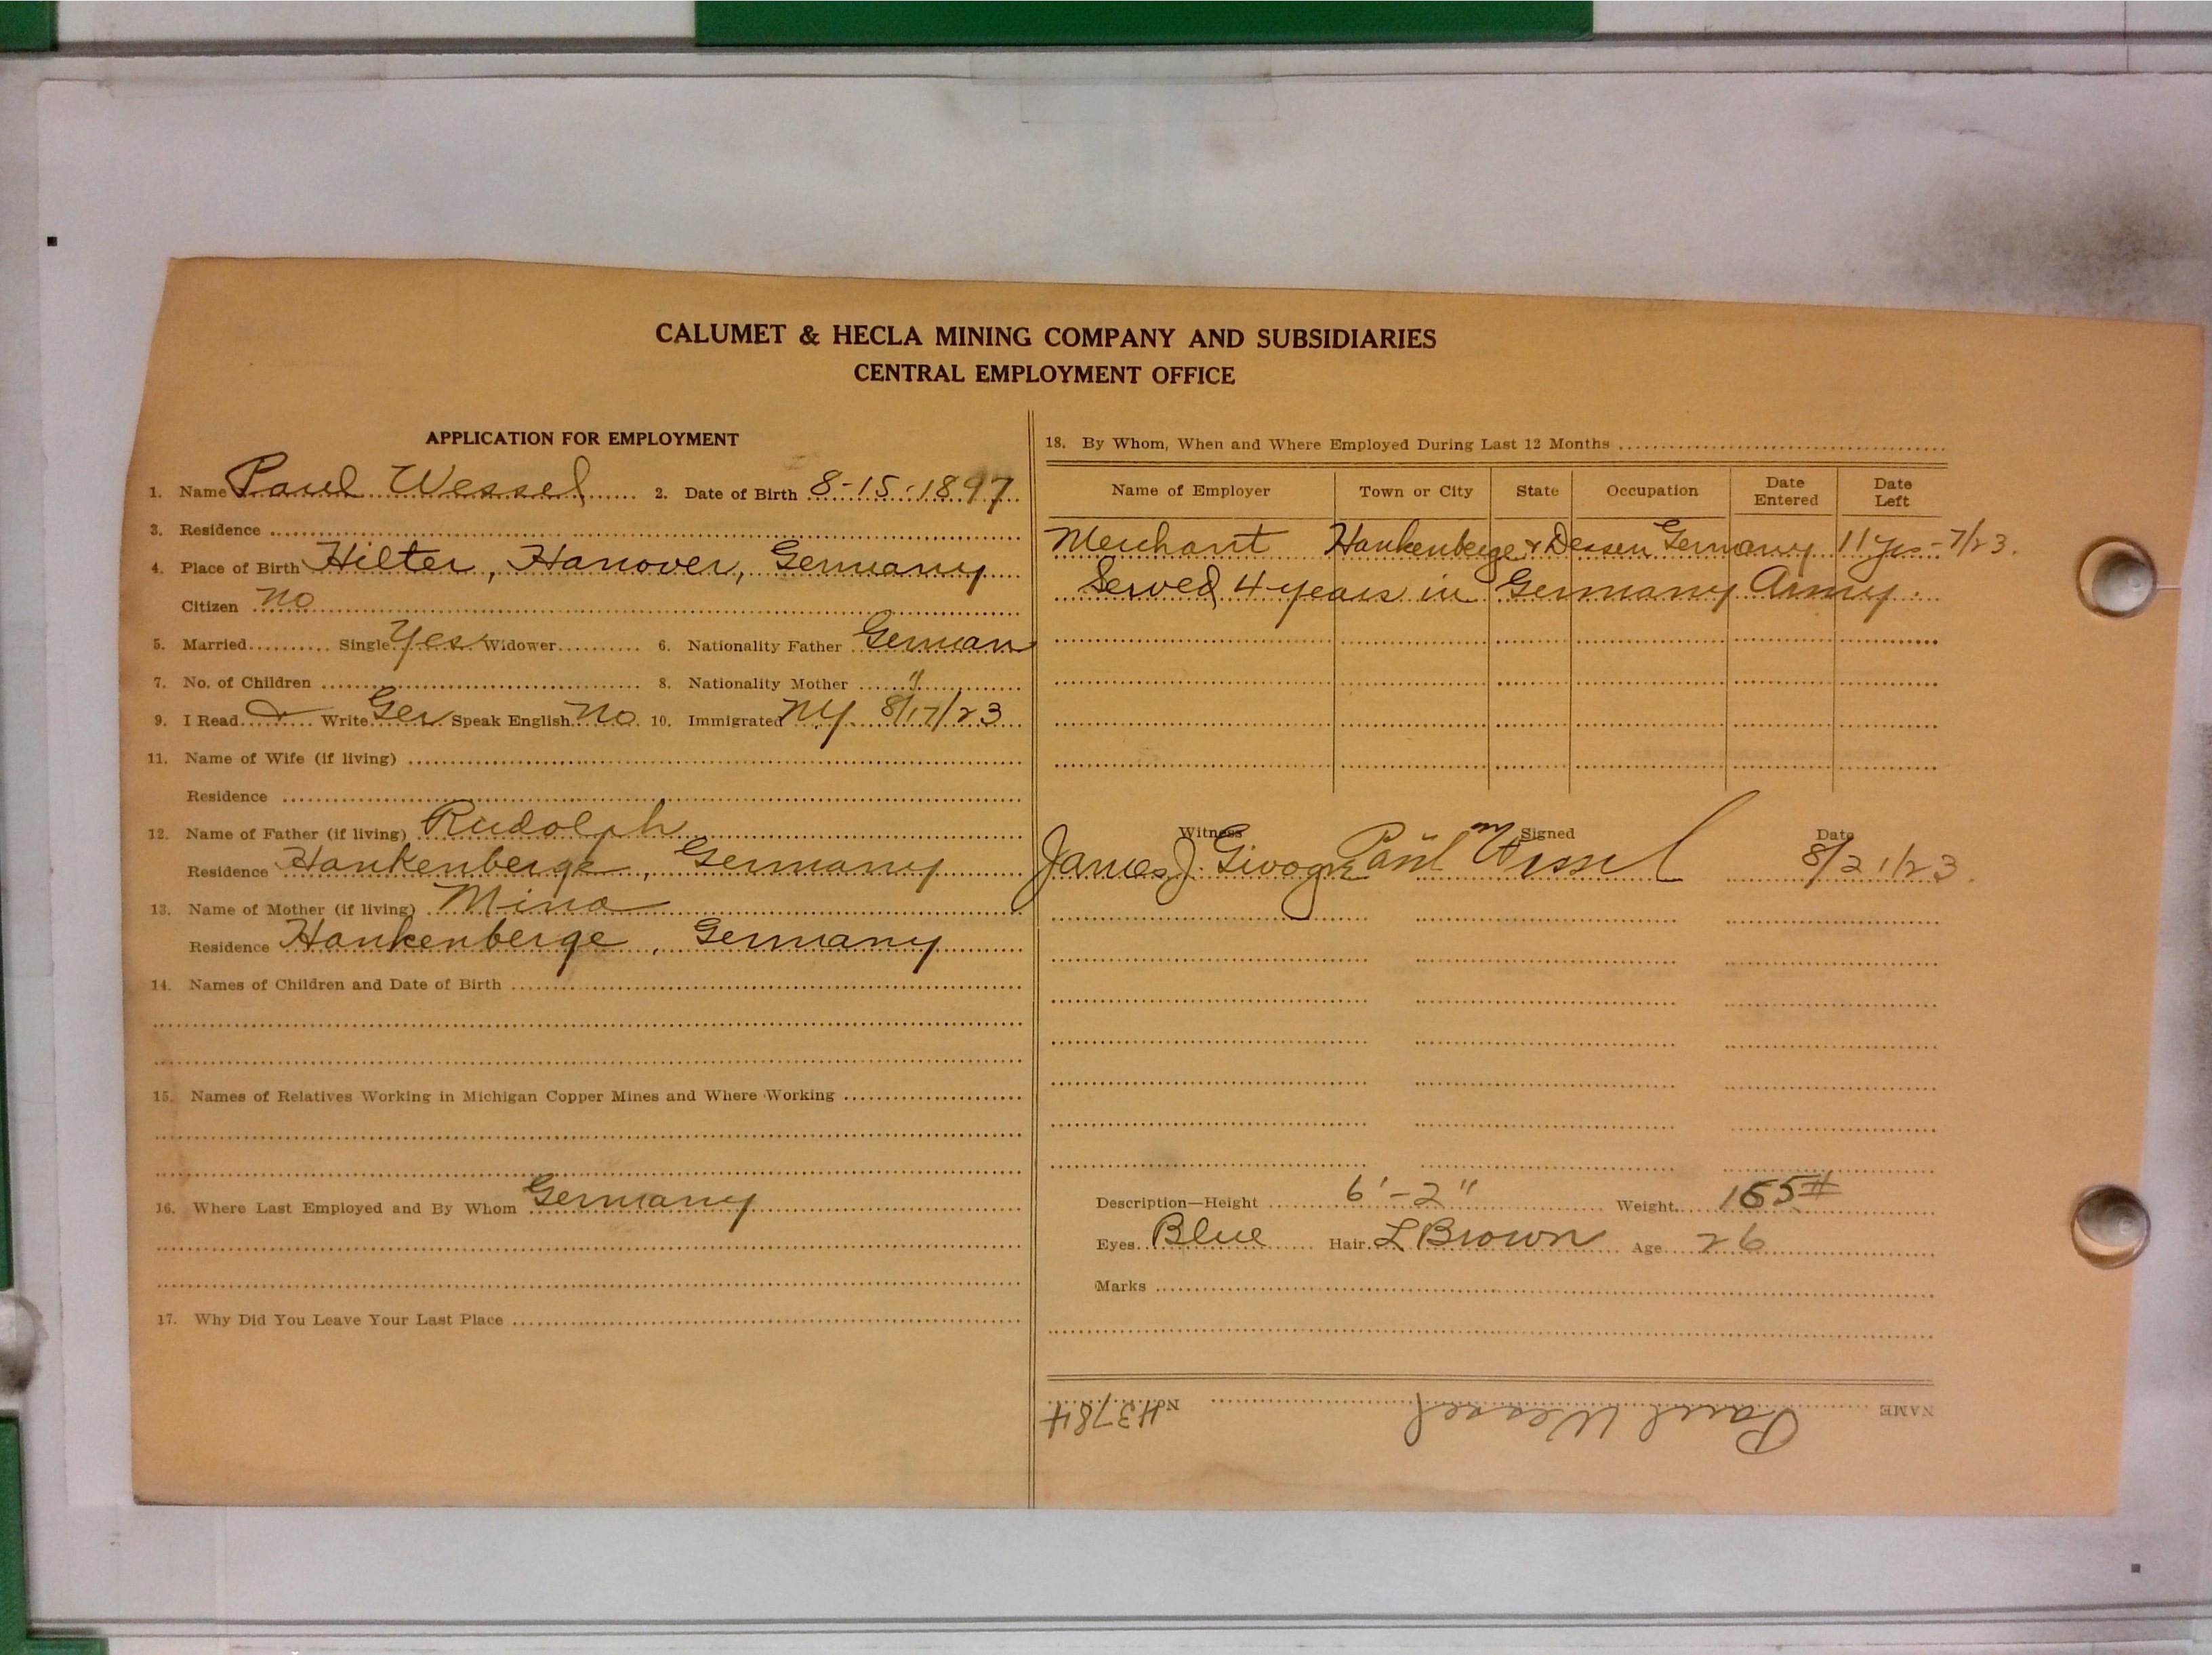 CALUMET & HECLA MINING COMPANY AND SUBSIDIARIES
CENTRAL EMPLOYMENT OFFICE
APPLICATION FOR EMPLOYMENT
1. Name Paul Wessel 2. Date of Birth 8-15-1897
3. Residence
4. Place of Birth Hilter, Hanover, Germany
Citizen no
5. Married Single Yes Widower 6. Nationality Father German
7. No. of Children 8. Nationality Mother "
9. I Read & Write Ger Speak English No 10. Immigrated NY 8/17/23
11. Name of Wife (if living)
Residence
12. Name of Father (if living) Rudolph
Residence Hankenberge, Germany
13. Name of Mother (if living) Mina
Residence Hankenberge, Germany
14. Names of Children and Date of Birth
15. Names of Relatives Working in Michigan Copper Mines and Where Working
16. Where Last Employed and By Whom Germany
17. Why Did You Leave Your Last Place
18. By Whom, When and Where Employed During Last 12 Months
Name of Employer Town or City State Occupation Date Entered Date Left
Merchant Hankenberge & Dessen Germany 11 yrs - 7/23.
Served 4 years in Germany Army.
Witness Signed Date
James J. Paul Wessel 8/21/23.
Description—Height 6'-2" Weight 165#
Eyes Blue Hair L Brown Age 26
Marks
NAME Paul Wessel No. H3784